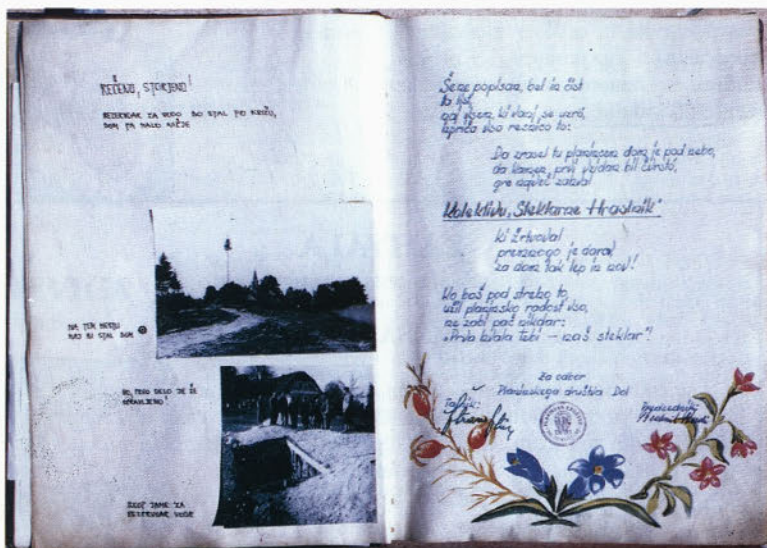 REČENO, STORJENO!
REZERVOAR ZA VODO BO STAL PO KRIŽU,
DOM PA MALO NIŽJE
NA TEM MESTU
NAJ BI STAL DOM
NO, PRVO DELO JE ŽE
OPRAVLJENO!
IZKOP JAME ZA
REZERVOAR VODE
Še ne popisan, bel in čist
ta list,
naj vsem, ki vanj se uzró,
izpriča vso resnico to:
Da zrasel tu planincem dom je pod nebo,
da kamen prvi vzidan bil čvrstó,
gre največ zahval
Kolektivu „Steklarne Hrastnik“,
ki žrtvoval
premnogo je darov,
za dom tak lep in nov!
Ko boš pod streho to,
užil planinsko radost vso,
ne zabi pač nikdar:
„Prva hvala Tebi – naš steklar“!
Za odbor
Planinskega društva Dol
Tajnik:
Predsednik: